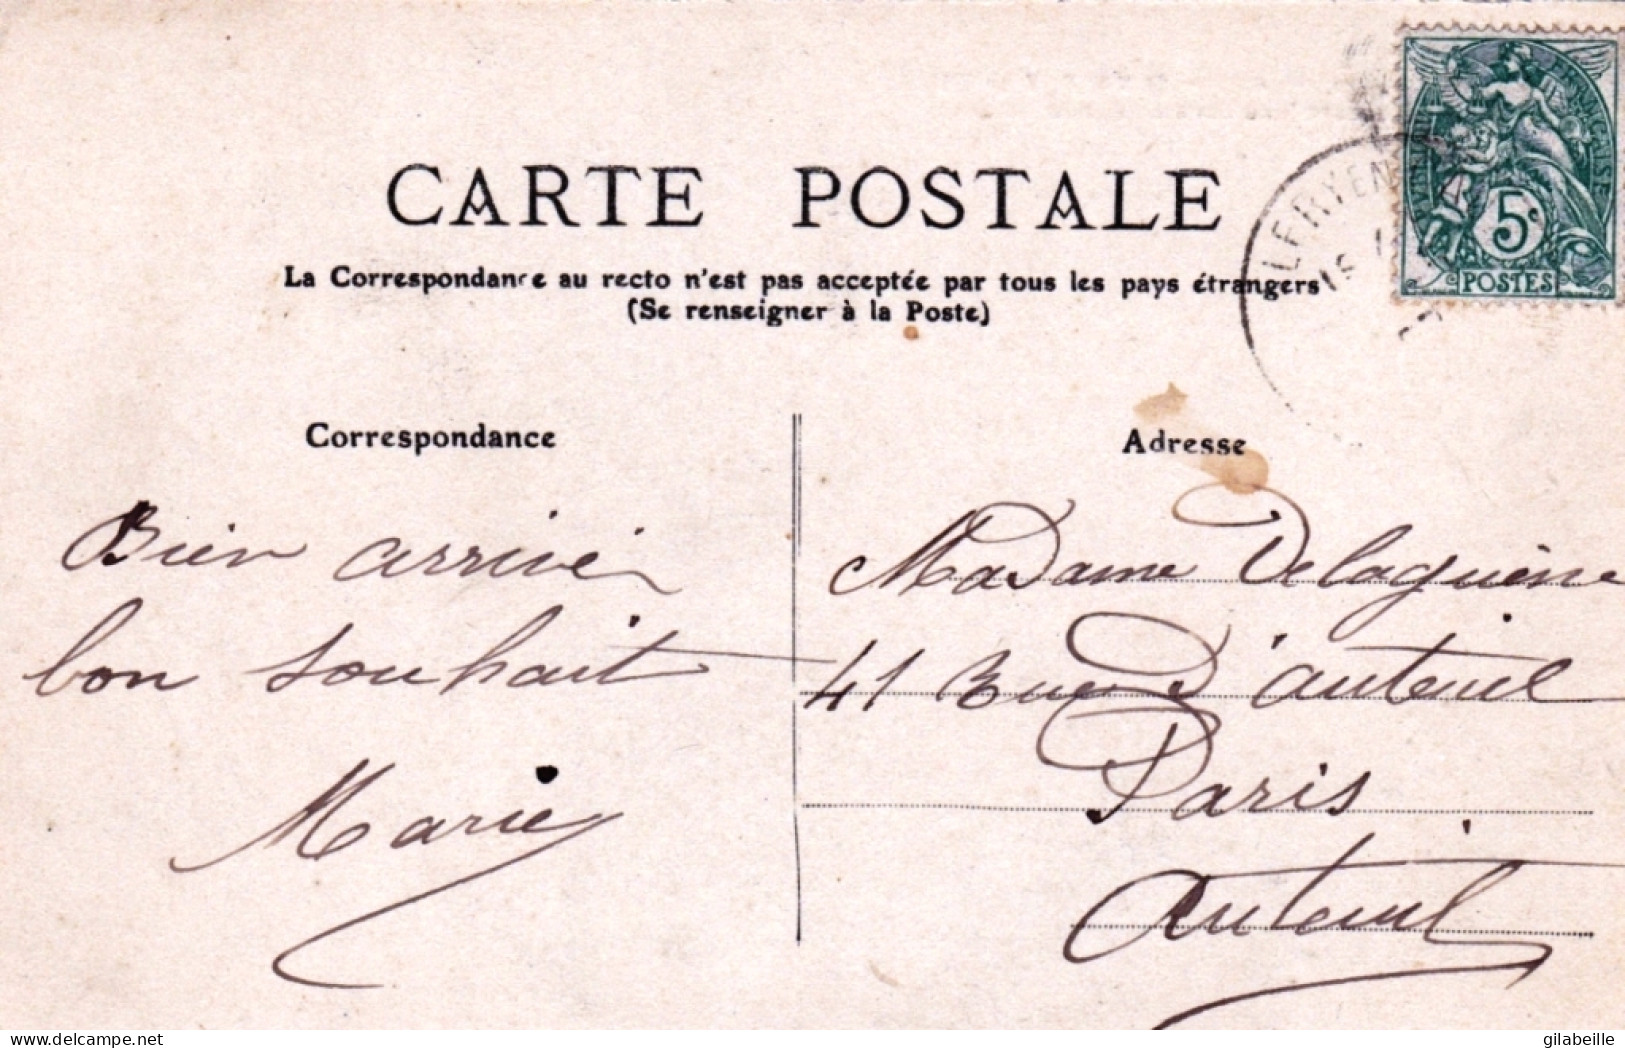 CARTE POSTALE
La Correspondance au recto n'est pas acceptée par tous les pays étrangers
(Se renseigner à la Poste)
RÉPUBLIQUE FRANÇAISE
5c
POSTES
Correspondance
Bien arrivé
bon souhait
Marie
Adresse
Madame Delaguérie
41 Rue d'auteuil
Paris
Auteuil
delcampe.net
gilabeille